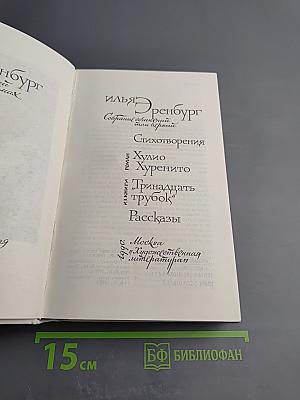 нбург
ИЛЬЯ
Эренбург
Собрание сочинений
том первый
Стихотворения
РОМАН
Хулио
Хуренито
ИЗ КНИГИ
"Тринадцать
трубок"
Рассказы
1990
Москва
"Художественная
литература"
15 см
БФ БИБЛИОФАН